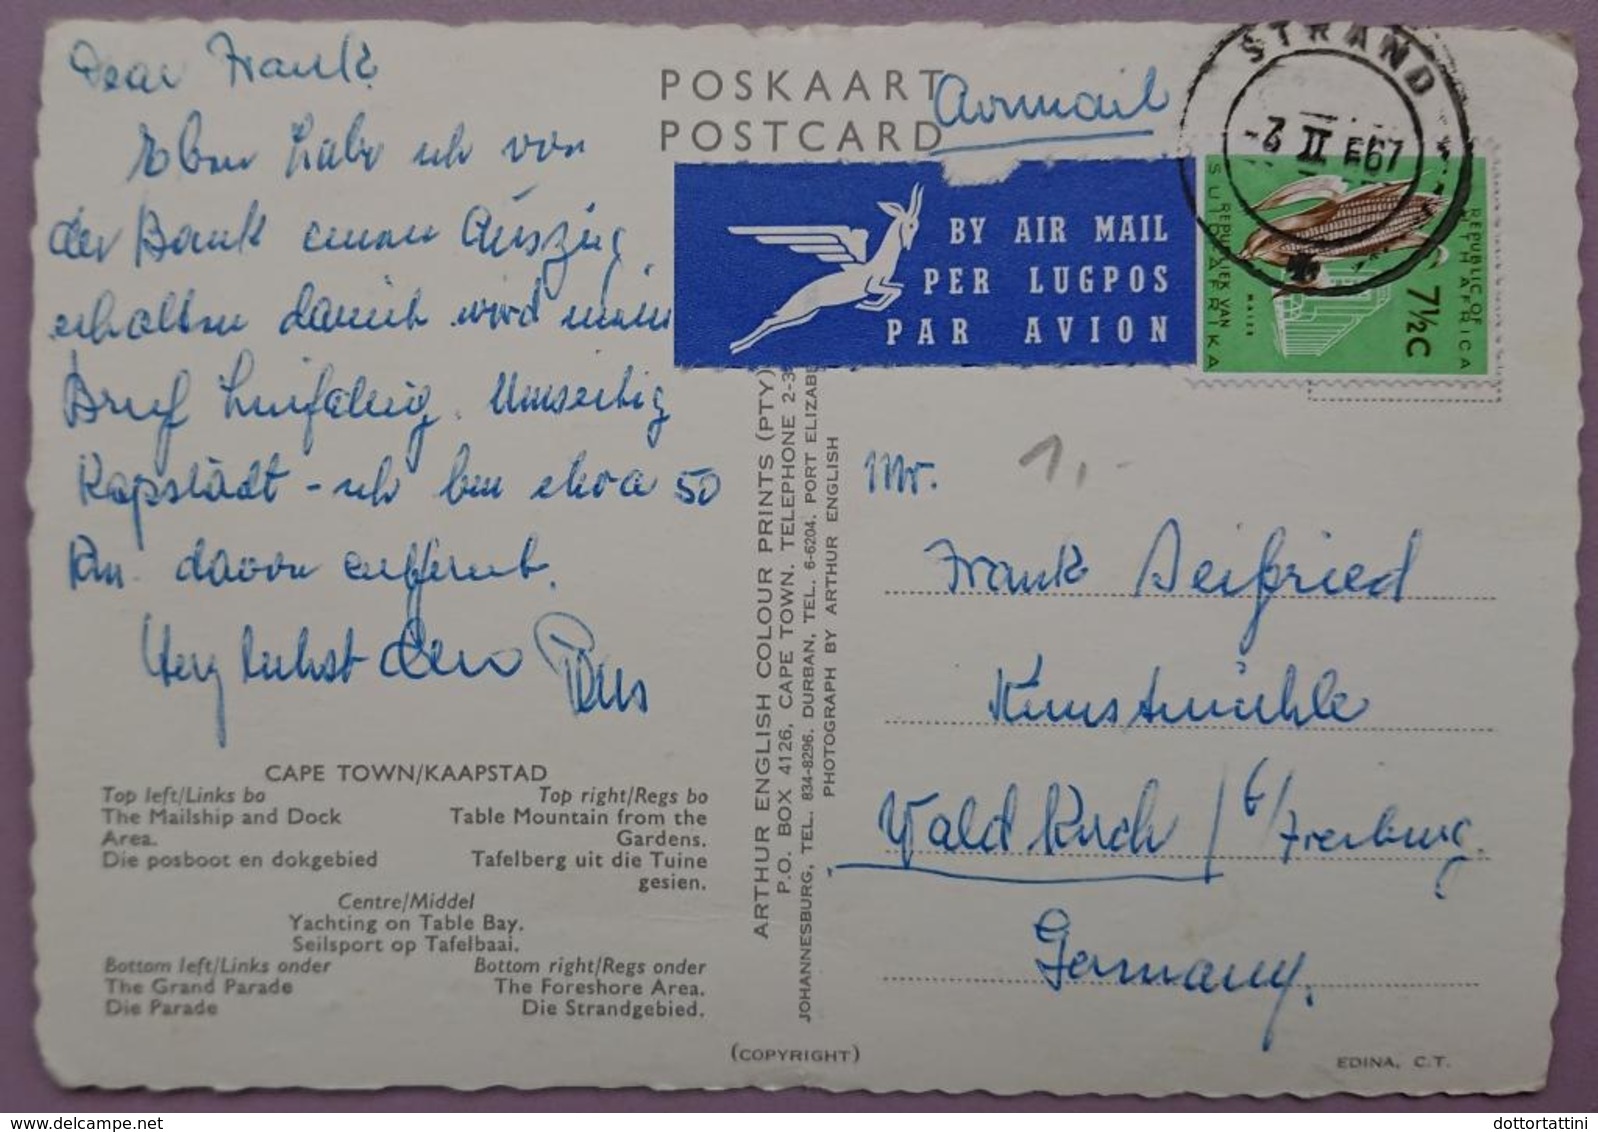 Dear Frank
Eben habe ich von
der Bank einen Auszug
erhalten damit wird mein
Brief hinfällig. Umseitig
Kapstadt - ich bin etwa 50
km. davon entfernt.
Herzlichst dein
CAPE TOWN/KAAPSTAD
Top left/Links bo
The Mailship and Dock
Area.
Die posboot en dokgebied
Top right/Regs bo
Table Mountain from the
Gardens.
Tafelberg uit die Tuine
gesien.
Centre/Middel
Yachting on Table Bay.
Seilsport op Tafelbaai.
Bottom left/Links onder
The Grand Parade
Die Parade
Bottom right/Regs onder
The Foreshore Area.
Die Strandgebied.
POSKAART
POSTCARD
Airmail
BY AIR MAIL
PER LUGPOS
PAR AVION
STRAND
II 67
REPUBLIC OF
SOUTH AFRICA
REPUBLIEK VAN
SUID-AFRIKA
7½C
ARTHUR ENGLISH COLOUR PRINTS (PTY)
P.O. BOX 4126, CAPE TOWN. TELEPHONE 2-3
JOHANNESBURG, TEL. 834-8296. DURBAN, TEL. 6-6204. PORT ELIZAB
PHOTOGRAPH BY ARTHUR ENGLISH
(COPYRIGHT)
1,-
Mr.
Frank Seifried
Kunstmühle
Waldkirch / b/Freiburg.
Germany.
EDINA, C.T.
dottortattini